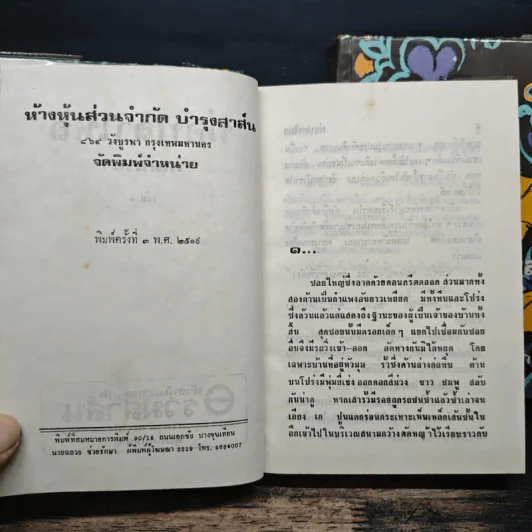 ห้างหุ้นส่วนจำกัด บำรุงสาส์น
๔๖๙ วังบูรพา กรุงเทพมหานคร
จัดพิมพ์จำหน่าย
พิมพ์ครั้งที่ ๓ พ.ศ. ๒๕๑๙
พิมพ์ที่สมหมายการพิมพ์ 30/18 ถนนเอกชัย บางขุนเทียน
นายฉลวย ช่วยรักษา ผู้พิมพ์ผู้โฆษณา 2519 โทร. 4624007
๑...
ซอยใหญ่ซึ่งลาดด้วยคอนกรีตตลอด ส่วนมากทั้ง
สองด้านเป็นกำแพงอันยาวเหยียด มีทั้งทึบและโปร่ง
ซึ่งล้วนแล้วแต่แสดงถึงฐานะของผู้เป็นเจ้าของบ้านทั้ง
สิ้น สุดซอยนั้นมีตรอกเล็ก ๆ แยกไปเชื่อมกับซอย
อื่นจึงมีรถวิ่งเข้า-ออก ลัดทางกันมิได้หยุด โดย
เฉพาะบ้านที่อยู่หัวมุม รั้วซึ่งด้านล่างก่อทึบ ด้าน
บนโปร่งมีพุ่มเฟื่อง ออกดอกสีม่วง ขาว ชมพู สลับ
กันน่าดู หากเสารั้วมีรอยถูกรถชนซ้ำแล้วซ้ำเล่าจน
เอียง เก ปูนแตกร่อนกระเทาะเห็นเหล็กเส้นชั้นใน
ลึกเข้าไปในบริเวณสนามกว้างตัดหญ้าไว้เรียบราวกับ